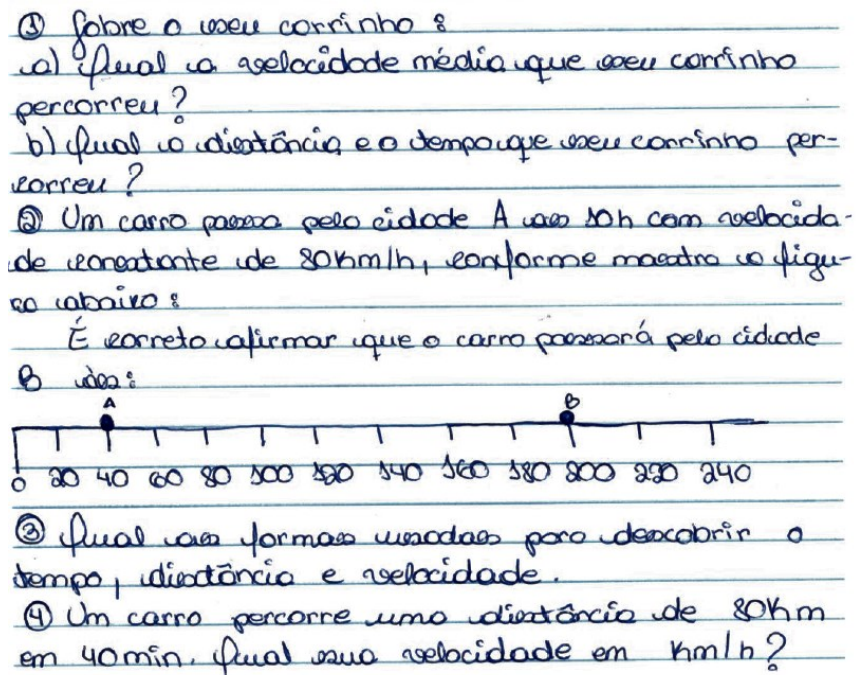 ① Sobre o seu corrinho:
a) Qual a velocidade média que seu corrinho
percorreu?
b) Qual a distância e o tempo que seu corrinho per-
correu?
② Um carro passa pela cidade A as 10h com velocida-
de constante de 80Km/h, conforme mostra a figu-
ra abaixo:
É correto afirmar que o carro passará pela cidade
B às:
A B
0 20 40 60 80 100 120 140 160 180 200 220 240
③ Qual as formas usadas para descobrir o
tempo, distância e velocidade.
④ Um carro percorre uma distância de 80Km
em 40min. Qual sua velocidade em Km/h?